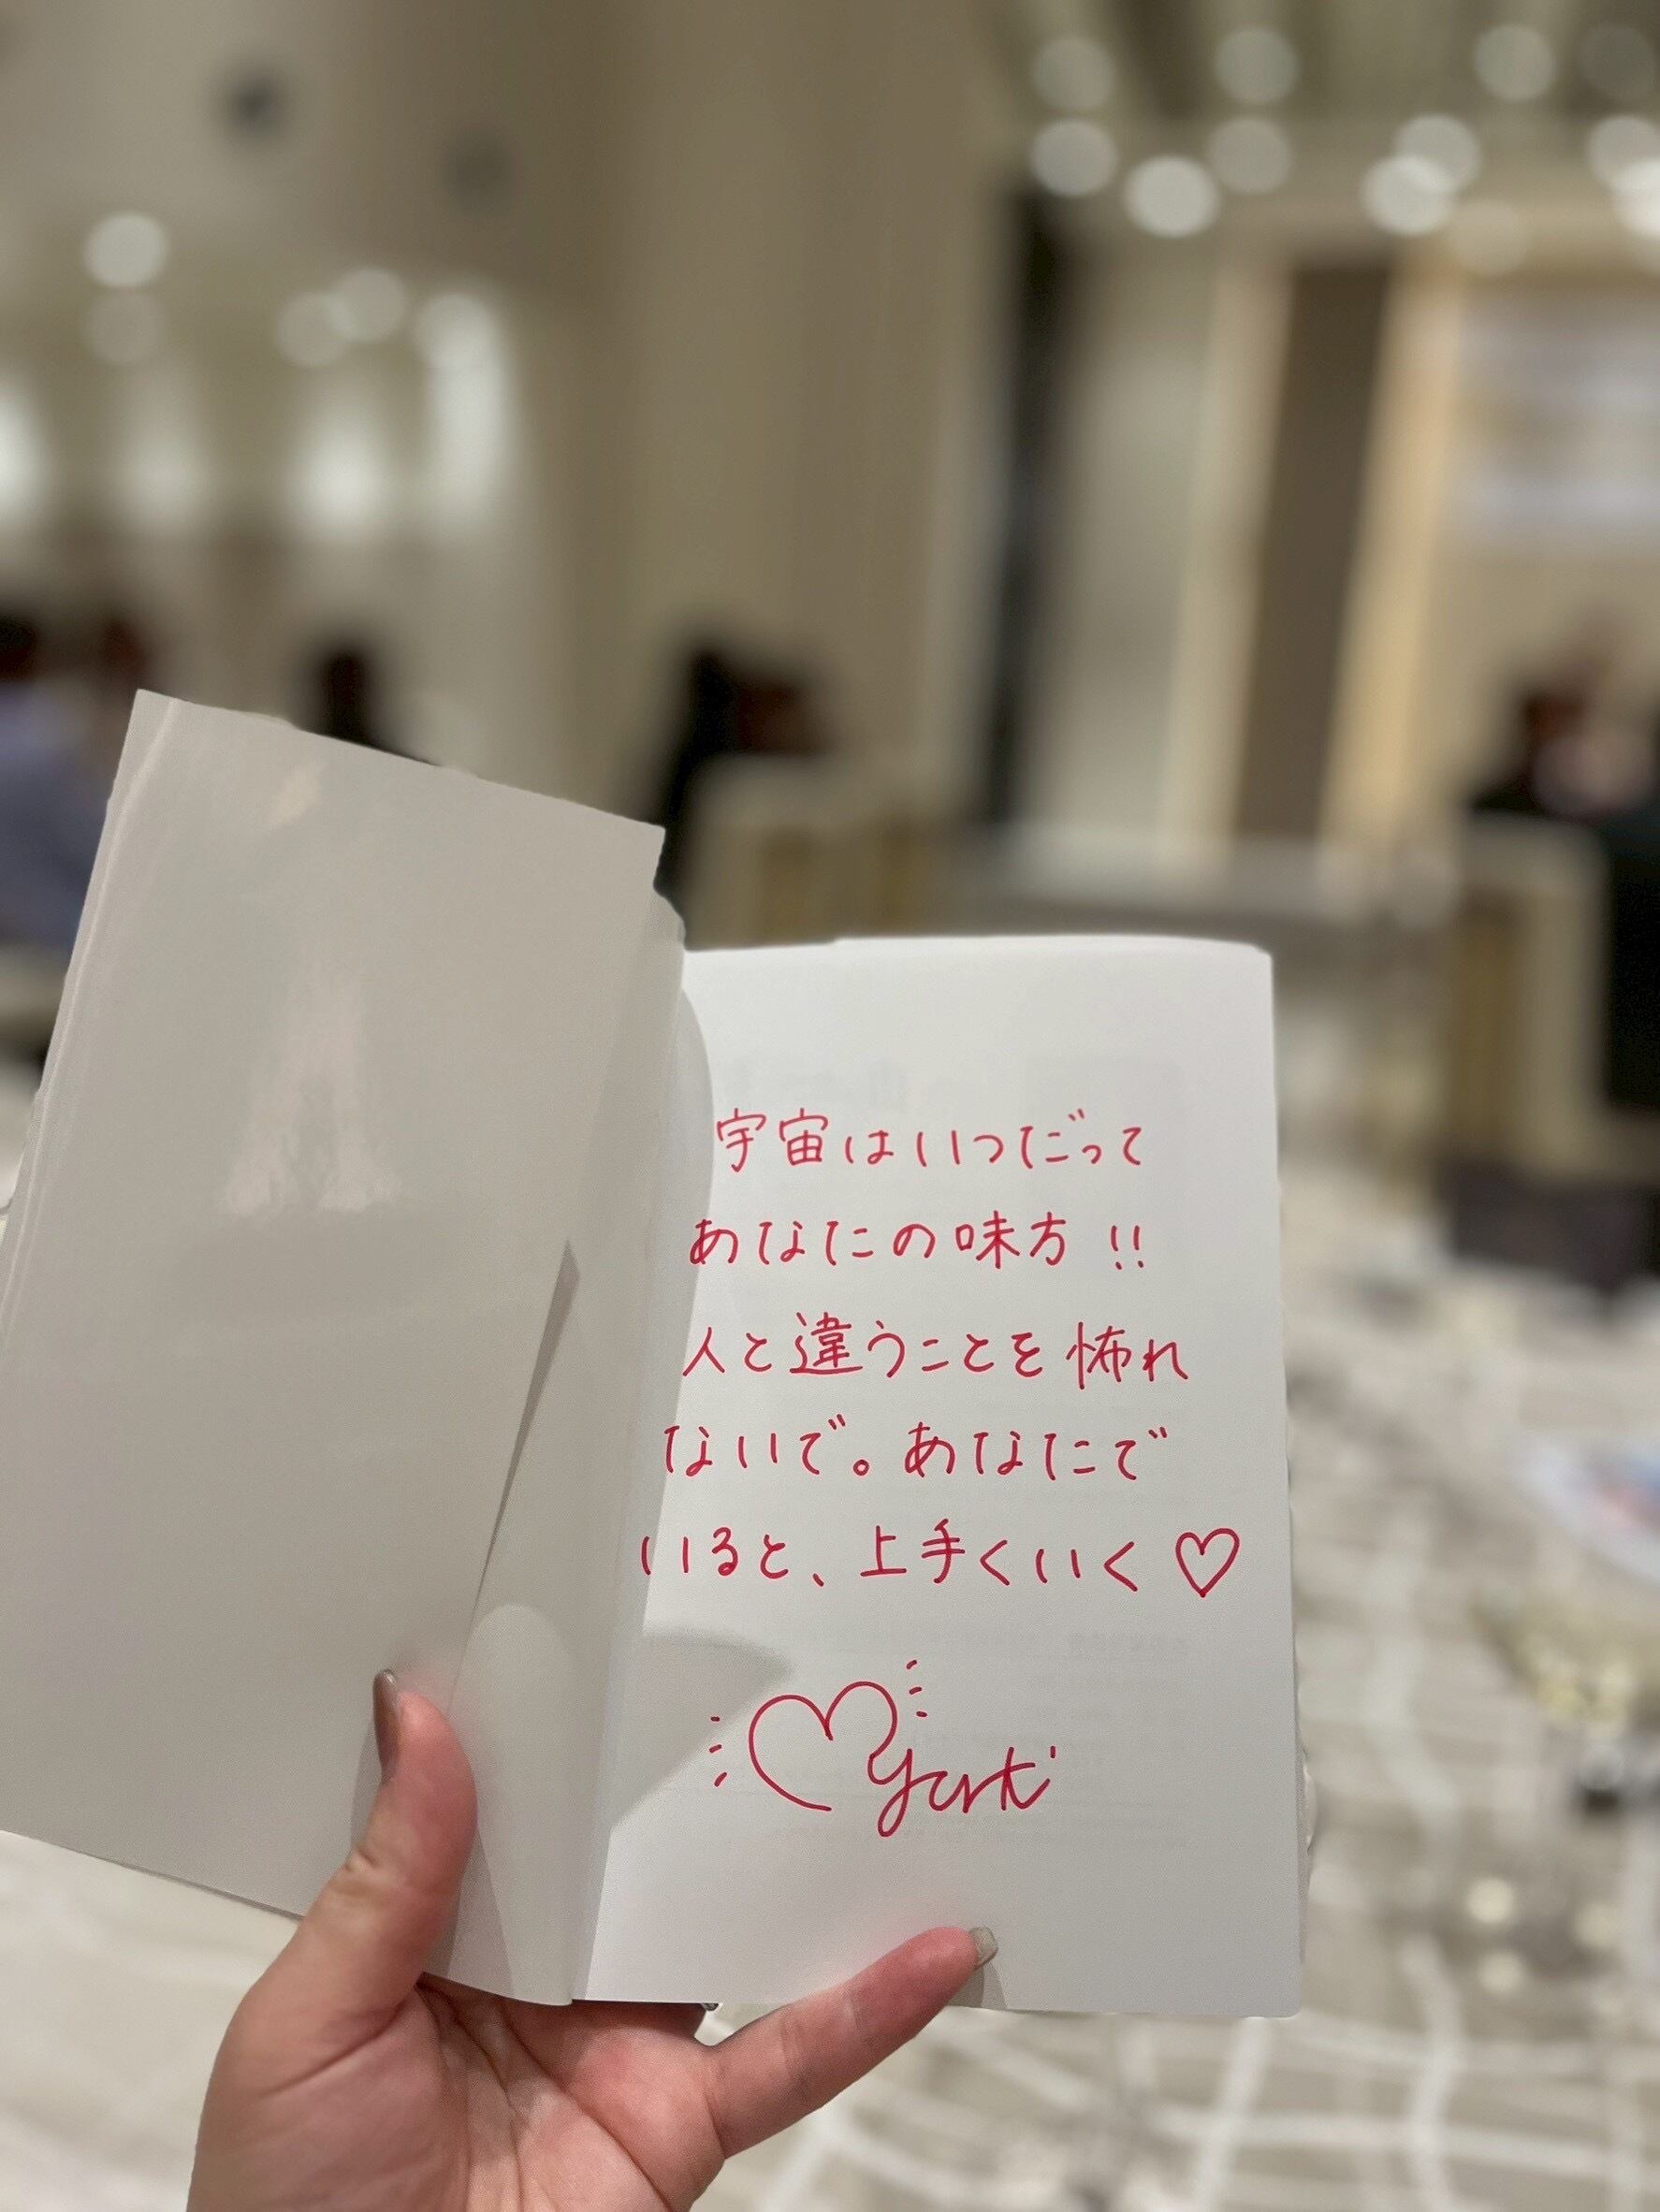 宇宙はいつだって
あなたの味方!!
人と違うことを怖れ
ないで。あなたで
いると、上手くいく♡